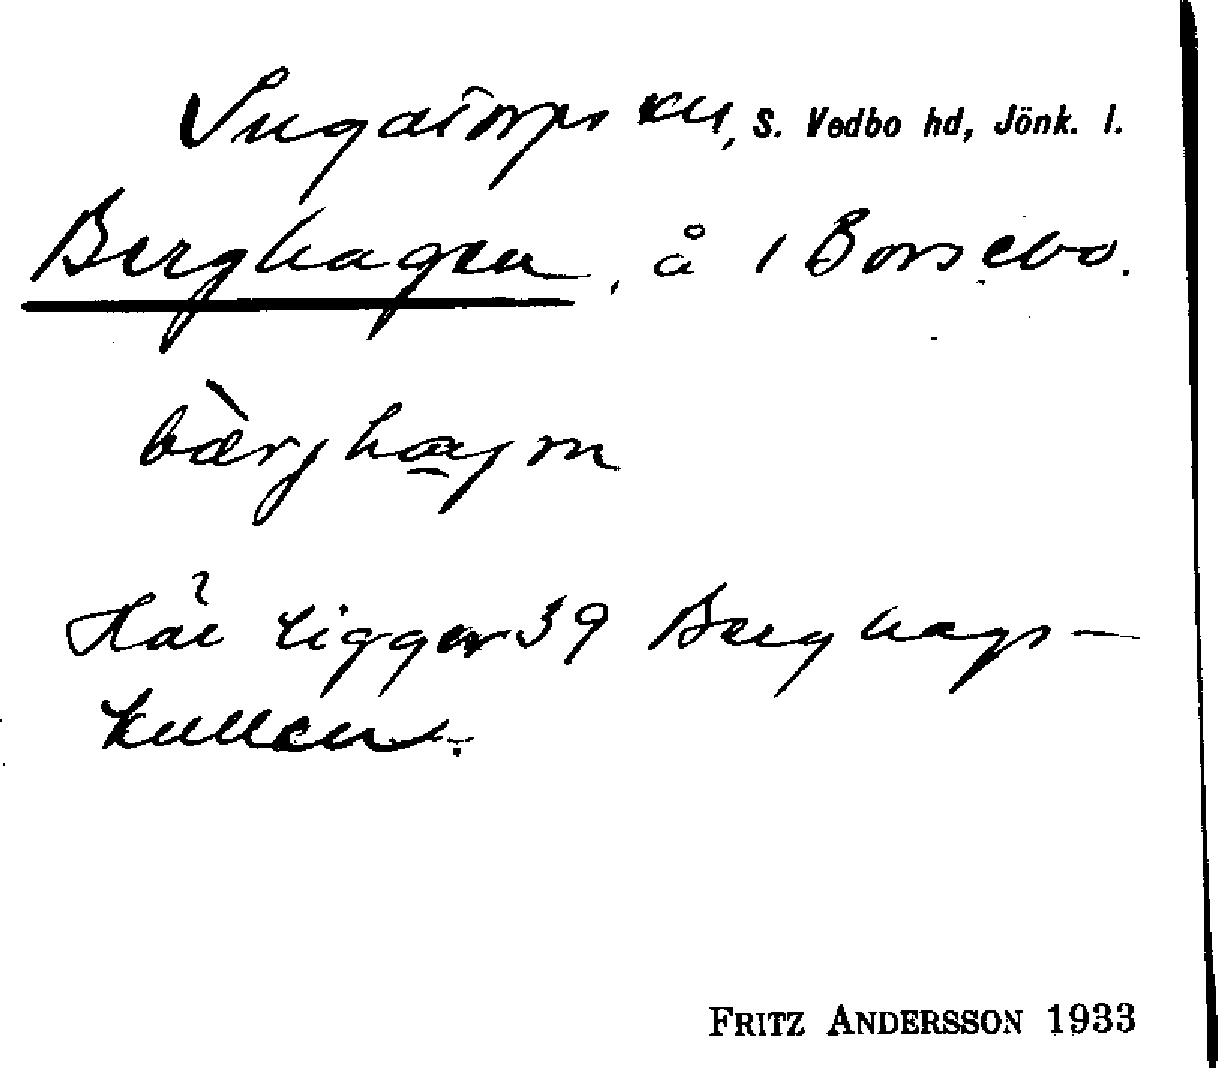 Ingatorps sn, S. Vedbo hd, Jönk. l.
Berghagen, å 1 Borsebo.
bærjhagən
Här ligger 39 Berghags-
kullen.
FRITZ ANDERSSON 1933